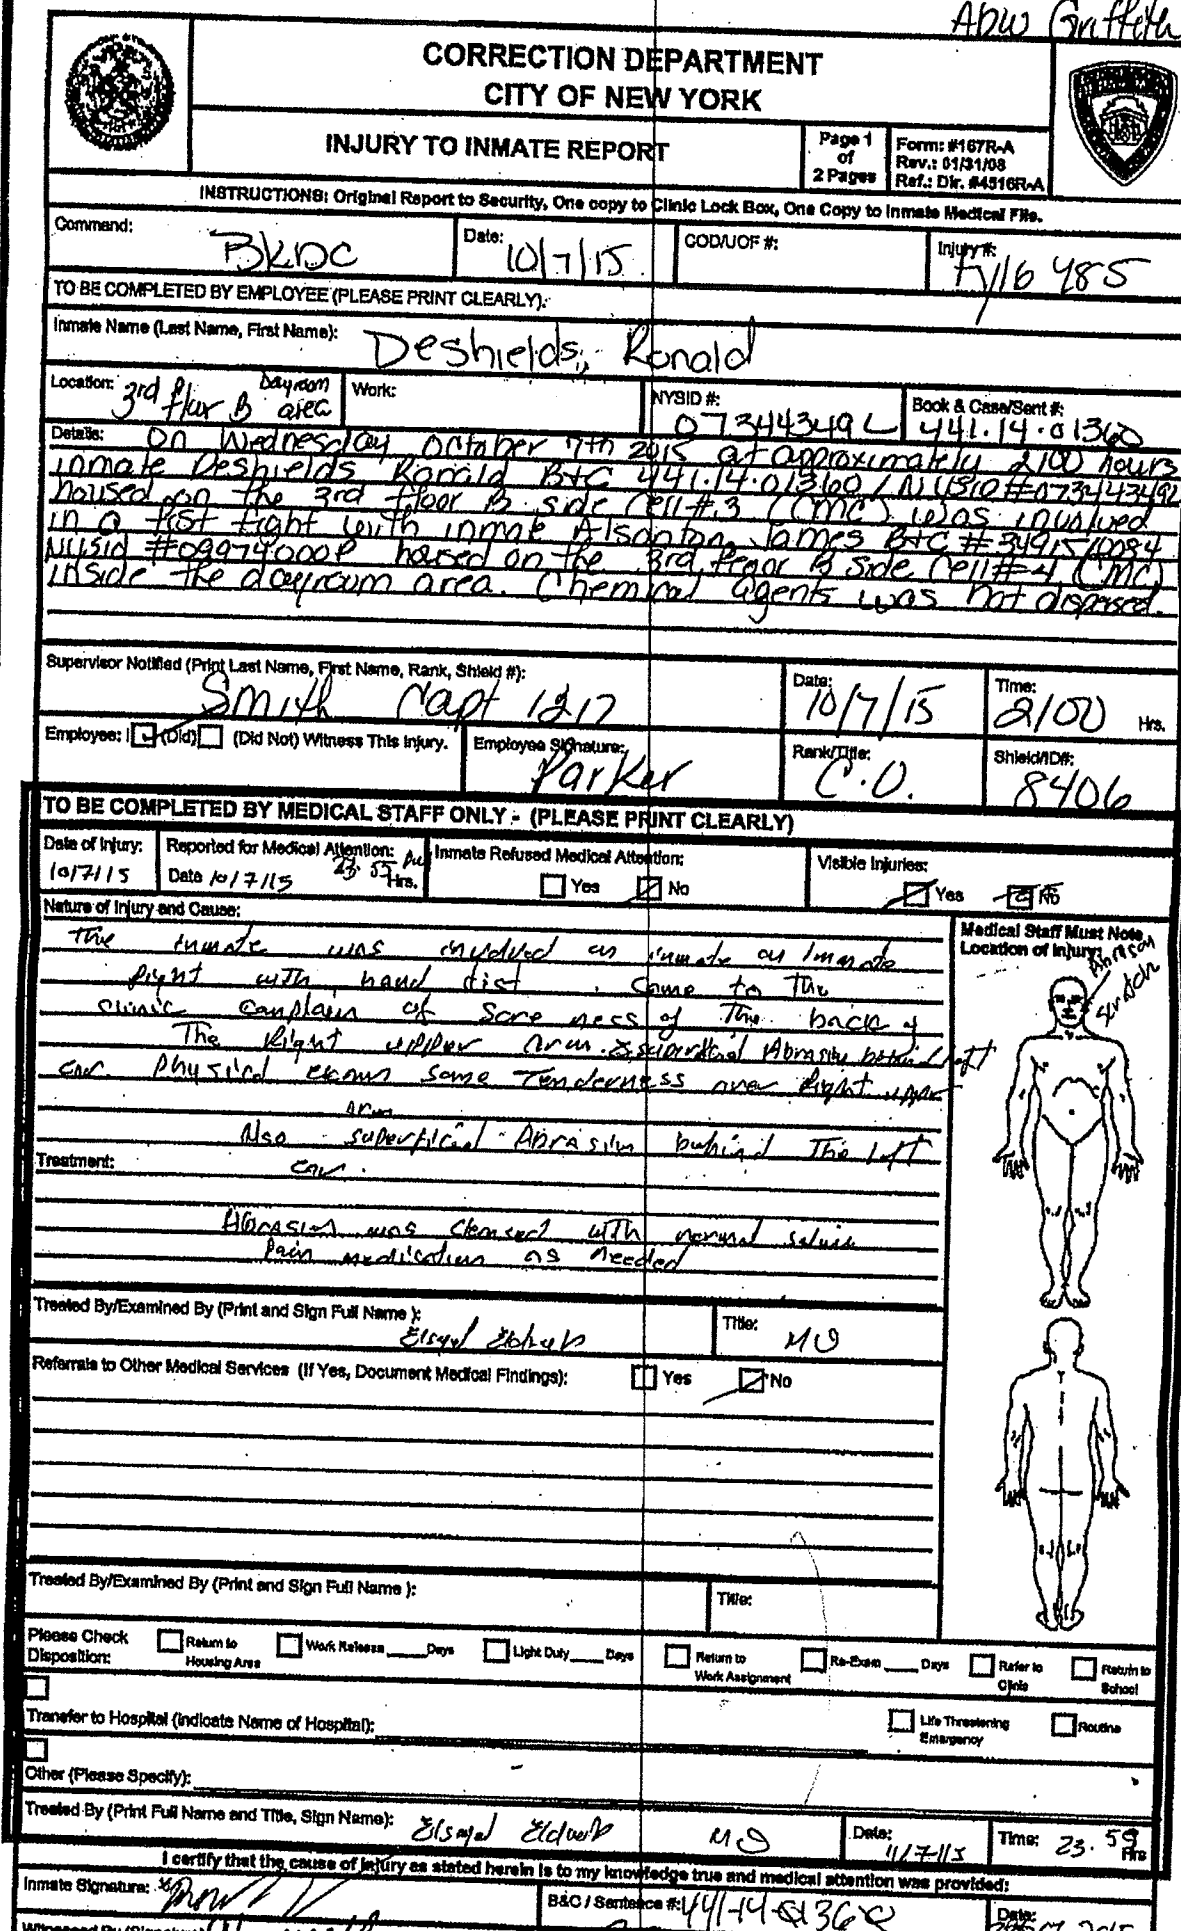 ADW Griffith
CORRECTION DEPARTMENT
CITY OF NEW YORK
INJURY TO INMATE REPORT
Page 1
of
2 Pages
Form: #167R-A
Rev.: 01/31/08
Ref.: Dir. #4516R-A
INSTRUCTIONS: Original Report to Security, One copy to Clinic Lock Box, One Copy to Inmate Medical File.
Command: BKDC
Date: 10/7/15
COD/UOF #:
Injury #: FY16 485
TO BE COMPLETED BY EMPLOYEE (PLEASE PRINT CLEARLY):
Inmate Name (Last Name, First Name): Deshields, Ronald
Location: 3rd flur B Dayroom area
Work:
NYSID #: 07344349L
Book & Case/Sent #: 441.14.01360
Details: On Wednesday October 7th 2015 at approximately 2100 hours
inmate Deshields Ronald B+C 441.14.01360 / NYSID #07344349L
housed on the 3rd floor B side cell #3 (CMC) was involved
in a fist fight with inmate Alsanton, James B+C # 3491510084
NYSID #09974000P housed on the 3rd floor B side cell #4 (CMC)
inside the dayroom area. Chemical agents was not dispersed.
Supervisor Notified (Print Last Name, First Name, Rank, Shield #): Smith Capt 1217
Date: 10/7/15
Time: 2100 Hrs.
Employee: I (Did) (Did Not) Witness This Injury.
Employee Signature: Parker
Rank/Title: C.O.
Shield/ID#: 8406
TO BE COMPLETED BY MEDICAL STAFF ONLY - (PLEASE PRINT CLEARLY)
Date of Injury: 10/7/15
Reported for Medical Attention: Date 10/7/15 23.55 Hrs.
Inmate Refused Medical Attention: Yes No
Visible Injuries: Yes No
Nature of Injury and Cause:
The inmate was involved an inmate on Inmate
fight with hand fist. Come to The
clinic complain of Soreness of The back of
The Right upper arm. & superficial Abrasion behind left
ear. physical exam some Tenderness over Right upper
arm
Also superficial Abrasion behind The left
ear.
Medical Staff Must Note
Location of Injury:
Abrasion
Scratch
Treatment:
Abrasion was cleansed with normal saline
Pain medication as needed
Treated By/Examined By (Print and Sign Full Name ):
Title: MD
Referrals to Other Medical Services (If Yes, Document Medical Findings): Yes No
Treated By/Examined By (Print and Sign Full Name ):
Title:
Please Check
Disposition:
Return to
Housing Area
Work Release ____ Days
Light Duty ____ Days
Return to
Work Assignment
Re-Exam ____ Days
Refer to
Clinic
Return to
School
Transfer to Hospital (Indicate Name of Hospital):
Life Threatening
Emergency
Routine
Other (Please Specify):
Treated By (Print Full Name and Title, Sign Name): MD
Date:
Time: 23.59 Hrs
I certify that the cause of injury as stated herein is to my knowledge true and medical attention was provided:
Inmate Signature:
B&C / Sentence #: 441-14-01360
Date: